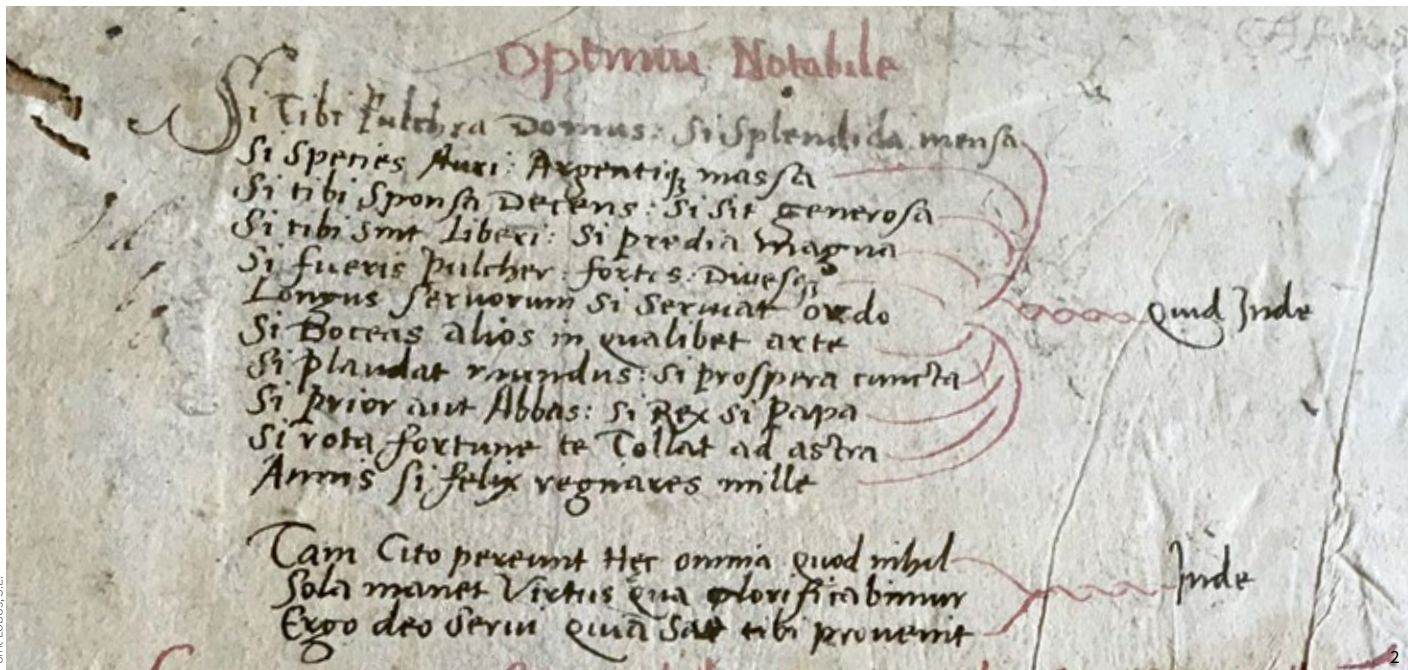 Optimu Notabile
Si Tibi Pulchra Domus: Si Splendida mensa
Si Species Auri: Argentiq massa
Si tibi Sponsa Decens: Si sit generosa
Si tibi Sint Liberi: Si predia magna
Si fueris Pulcher: fortis: Divesq
Longus servorum Si Serviat ordo
Quid Inde
Si Doceas alios in qualibet arte
Si plaudat mundus: Si prospera cuncta
Si prior aut Abbas: Si Rex Si Papa
Si rota fortune te Tollat ad astra
Annis Si felix regnares mille
Tam Cito pereunt Hec omnia quod nihil
Inde
Sola manet Virtus qua glorificabimur
Ergo deo Servi quia Sat tibi provenit
2